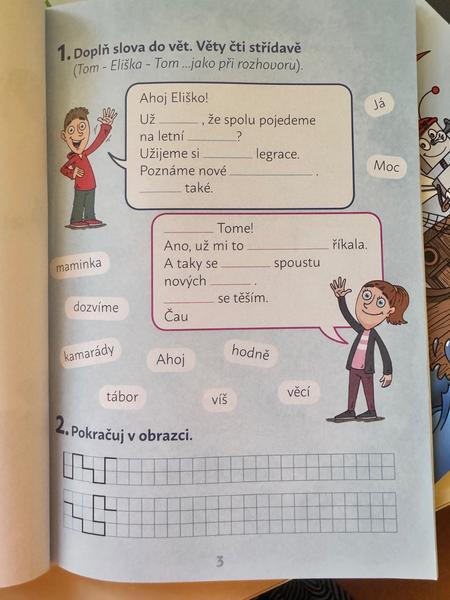 1. Doplň slova do vět. Věty čti střídavě
(Tom - Eliška - Tom ...jako při rozhovoru).
Ahoj Eliško!
Už ______ , že spolu pojedeme
na letní ________?
Užijeme si ________ legrace.
Poznáme nové _____________ .
_______ také.
Já
Moc
________ Tome!
Ano, už mi to _____________ říkala.
A taky se ________ spoustu
nových _______ .
________ se těším.
Čau
maminka
dozvíme
kamarády
Ahoj
hodně
tábor
víš
věcí
2. Pokračuj v obrazci.
3